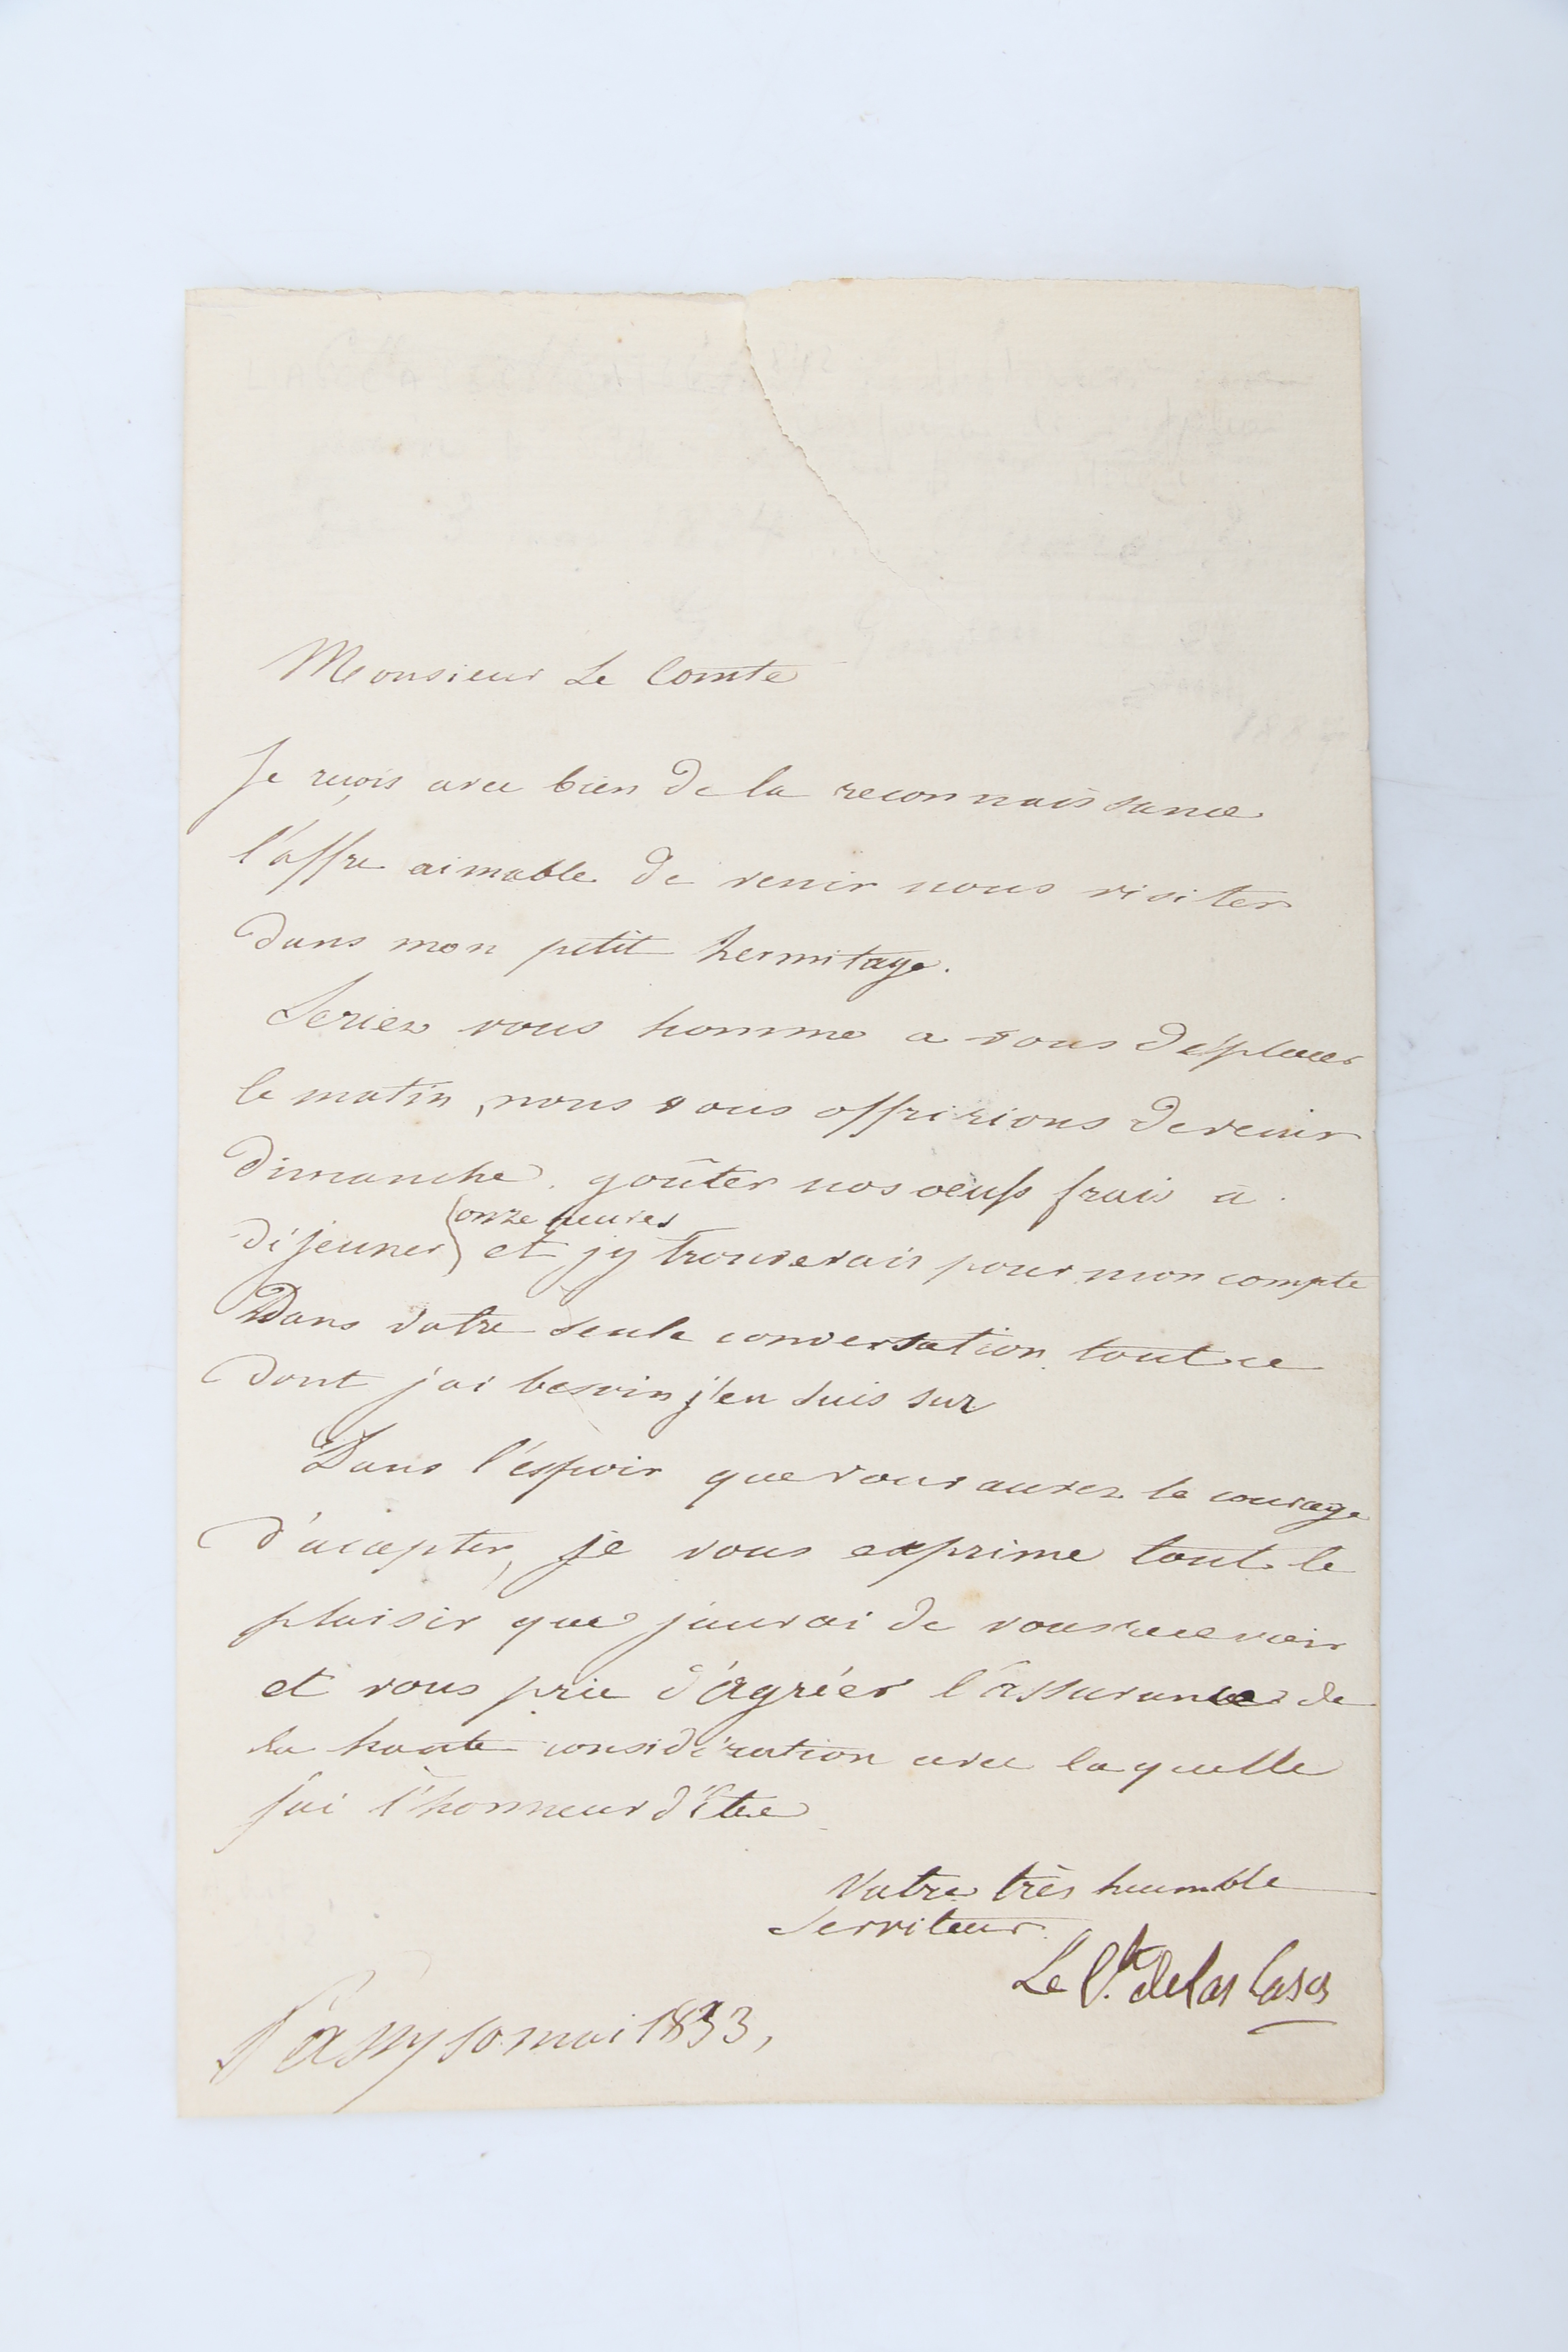 Monsieur Le Comte
Je reçois avec bien de la reconnaissance
l'offre aimable de venir nous visiter
dans mon petit hermitage.
Seriez vous homme a vous déplacer
le matin, nous vous offririons de venir
dimanche goûter nos oeufs frais a
onze heures
déjeuner et jy trouverais pour mon compte
Dans votre seule conversation tout ce
dont j'ai besoin j'en suis sur
Dans l'espoir que vous aurez le courage
d'accepter, je vous exprime tout le
plaisir que jaurai de vous recevoir
et vous prie d'agréer l'assurance de
la haute considération avec laquelle
jai l'honneur d'être
Votre très humble
Serviteur
Le Cte de Las Cases
Passy 10 mai 1833,